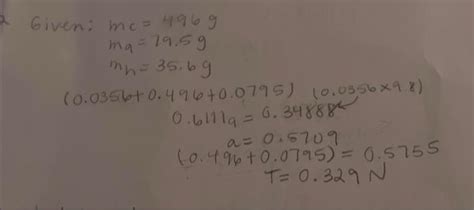 2 Given: mc = 496 g
ma = 79.5 g
mh = 35.6 g
(0.0356+0.496+0.0795) (0.0356×9.8)
0.6111a = 0.34888
a= 0.5709
(0.496+0.0795) = 0.5755
T= 0.329 N